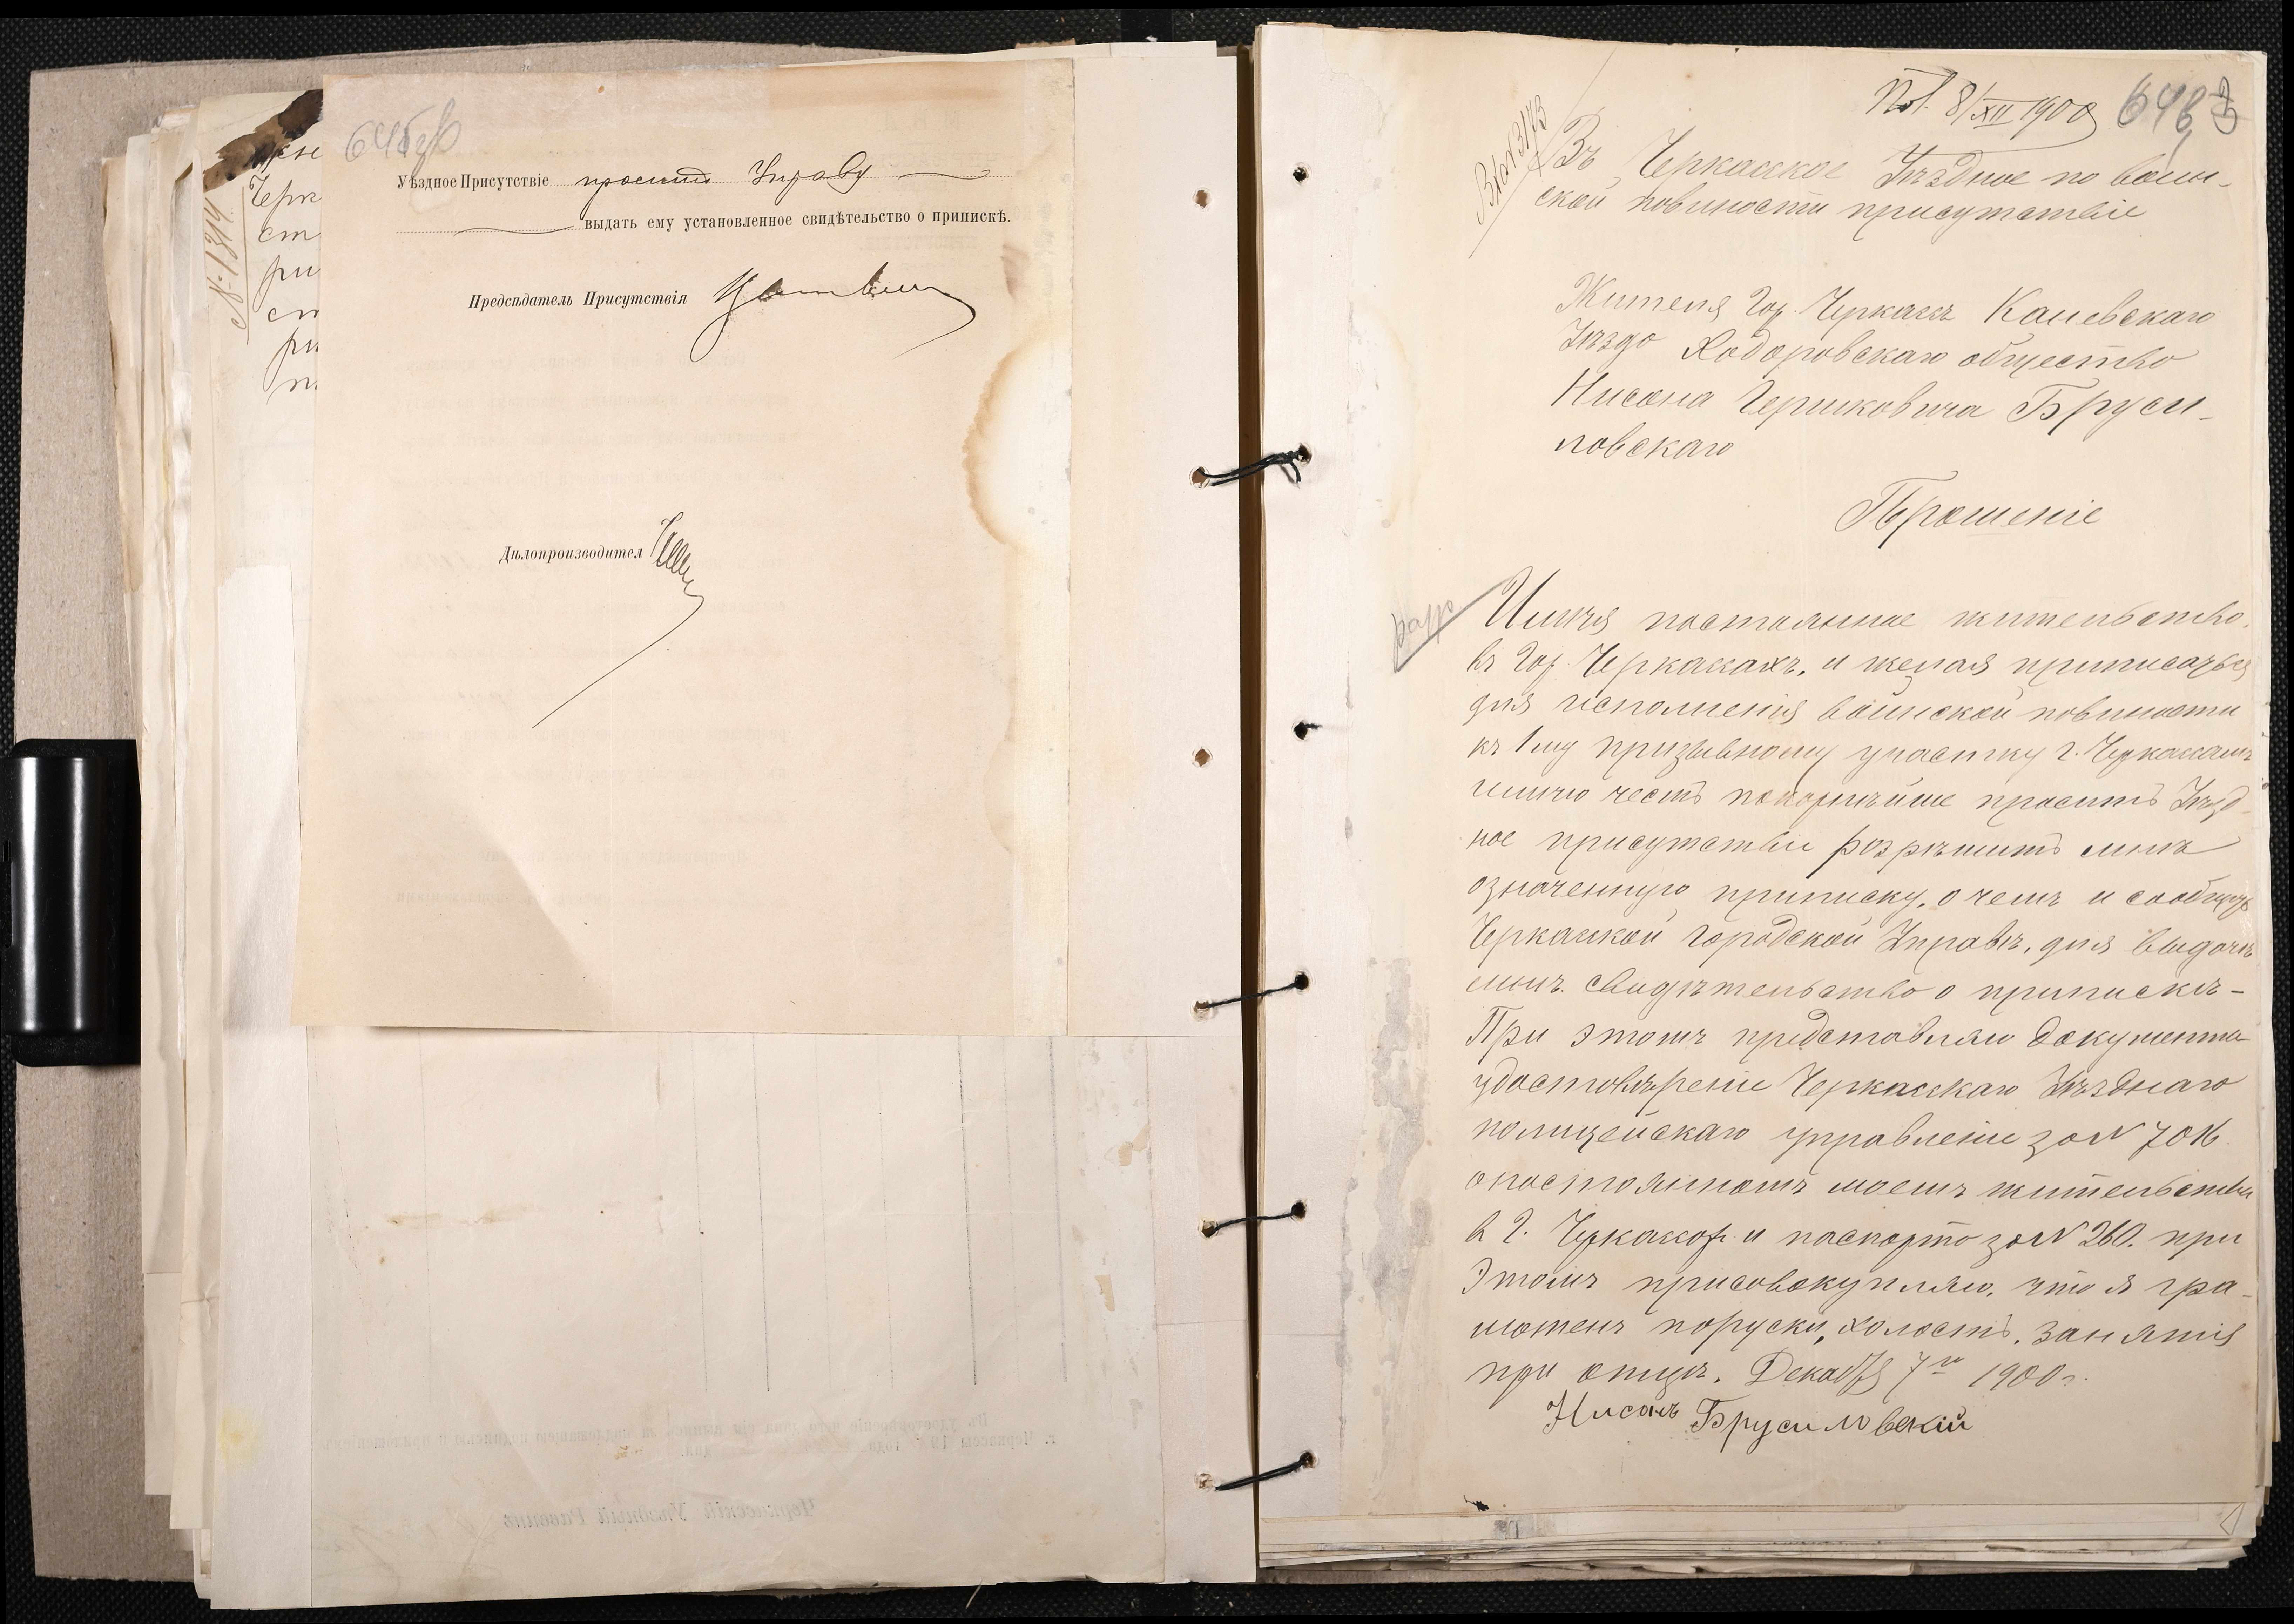 Уѣздное Присутствіе проситъ Управу
выдать ему установленное свидѣтельство о припискѣ.
Предсѣдатель Присутствія
Дѣлопроизводител
Черк
ст
ри
сп
ри
№ 1314
Пол. 8/XII 1900
Вх № 3173
Въ Черкасское Уѣздное по воин-
ской повиности присутствіе
Жителя Гор. Черкассъ Каневскаго
Уѣзда Ходоровскаго общество
Нисона Гершковича Бруси-
ловскаго
Прошеніе
Имѣя постоянное жительство
въ Гор. Черкасахъ, и желая приписаться
для исполненія воинской повиности
къ 1му призывному участку г. Черкассамъ
имѣю честь покорнѣйше просить Уѣзд-
ное присутствіе розрѣшить мнѣ
означенную приписку, о чемъ и сообщить
Черкаской Городской Управѣ, для выдачѣ
мнѣ свидѣтельство о припискѣ -
При этомъ предстовляю документы
удостовѣреніе Черкасскаго Уѣзднаго
полицейскаго управленіе за № 7016
о постоянномъ моемъ жительства
в г. Черкассах и паспорто за № 260. при
Этомъ присовокупляю, что я гра-
мотенъ поруски, холостъ, занятія
при отцѣ. Декабря 7го 1900 г.
Нисонъ Брусиловскій
г. Черкассы 19 года дня.
Черкасскій Уѣздный Раввинъ